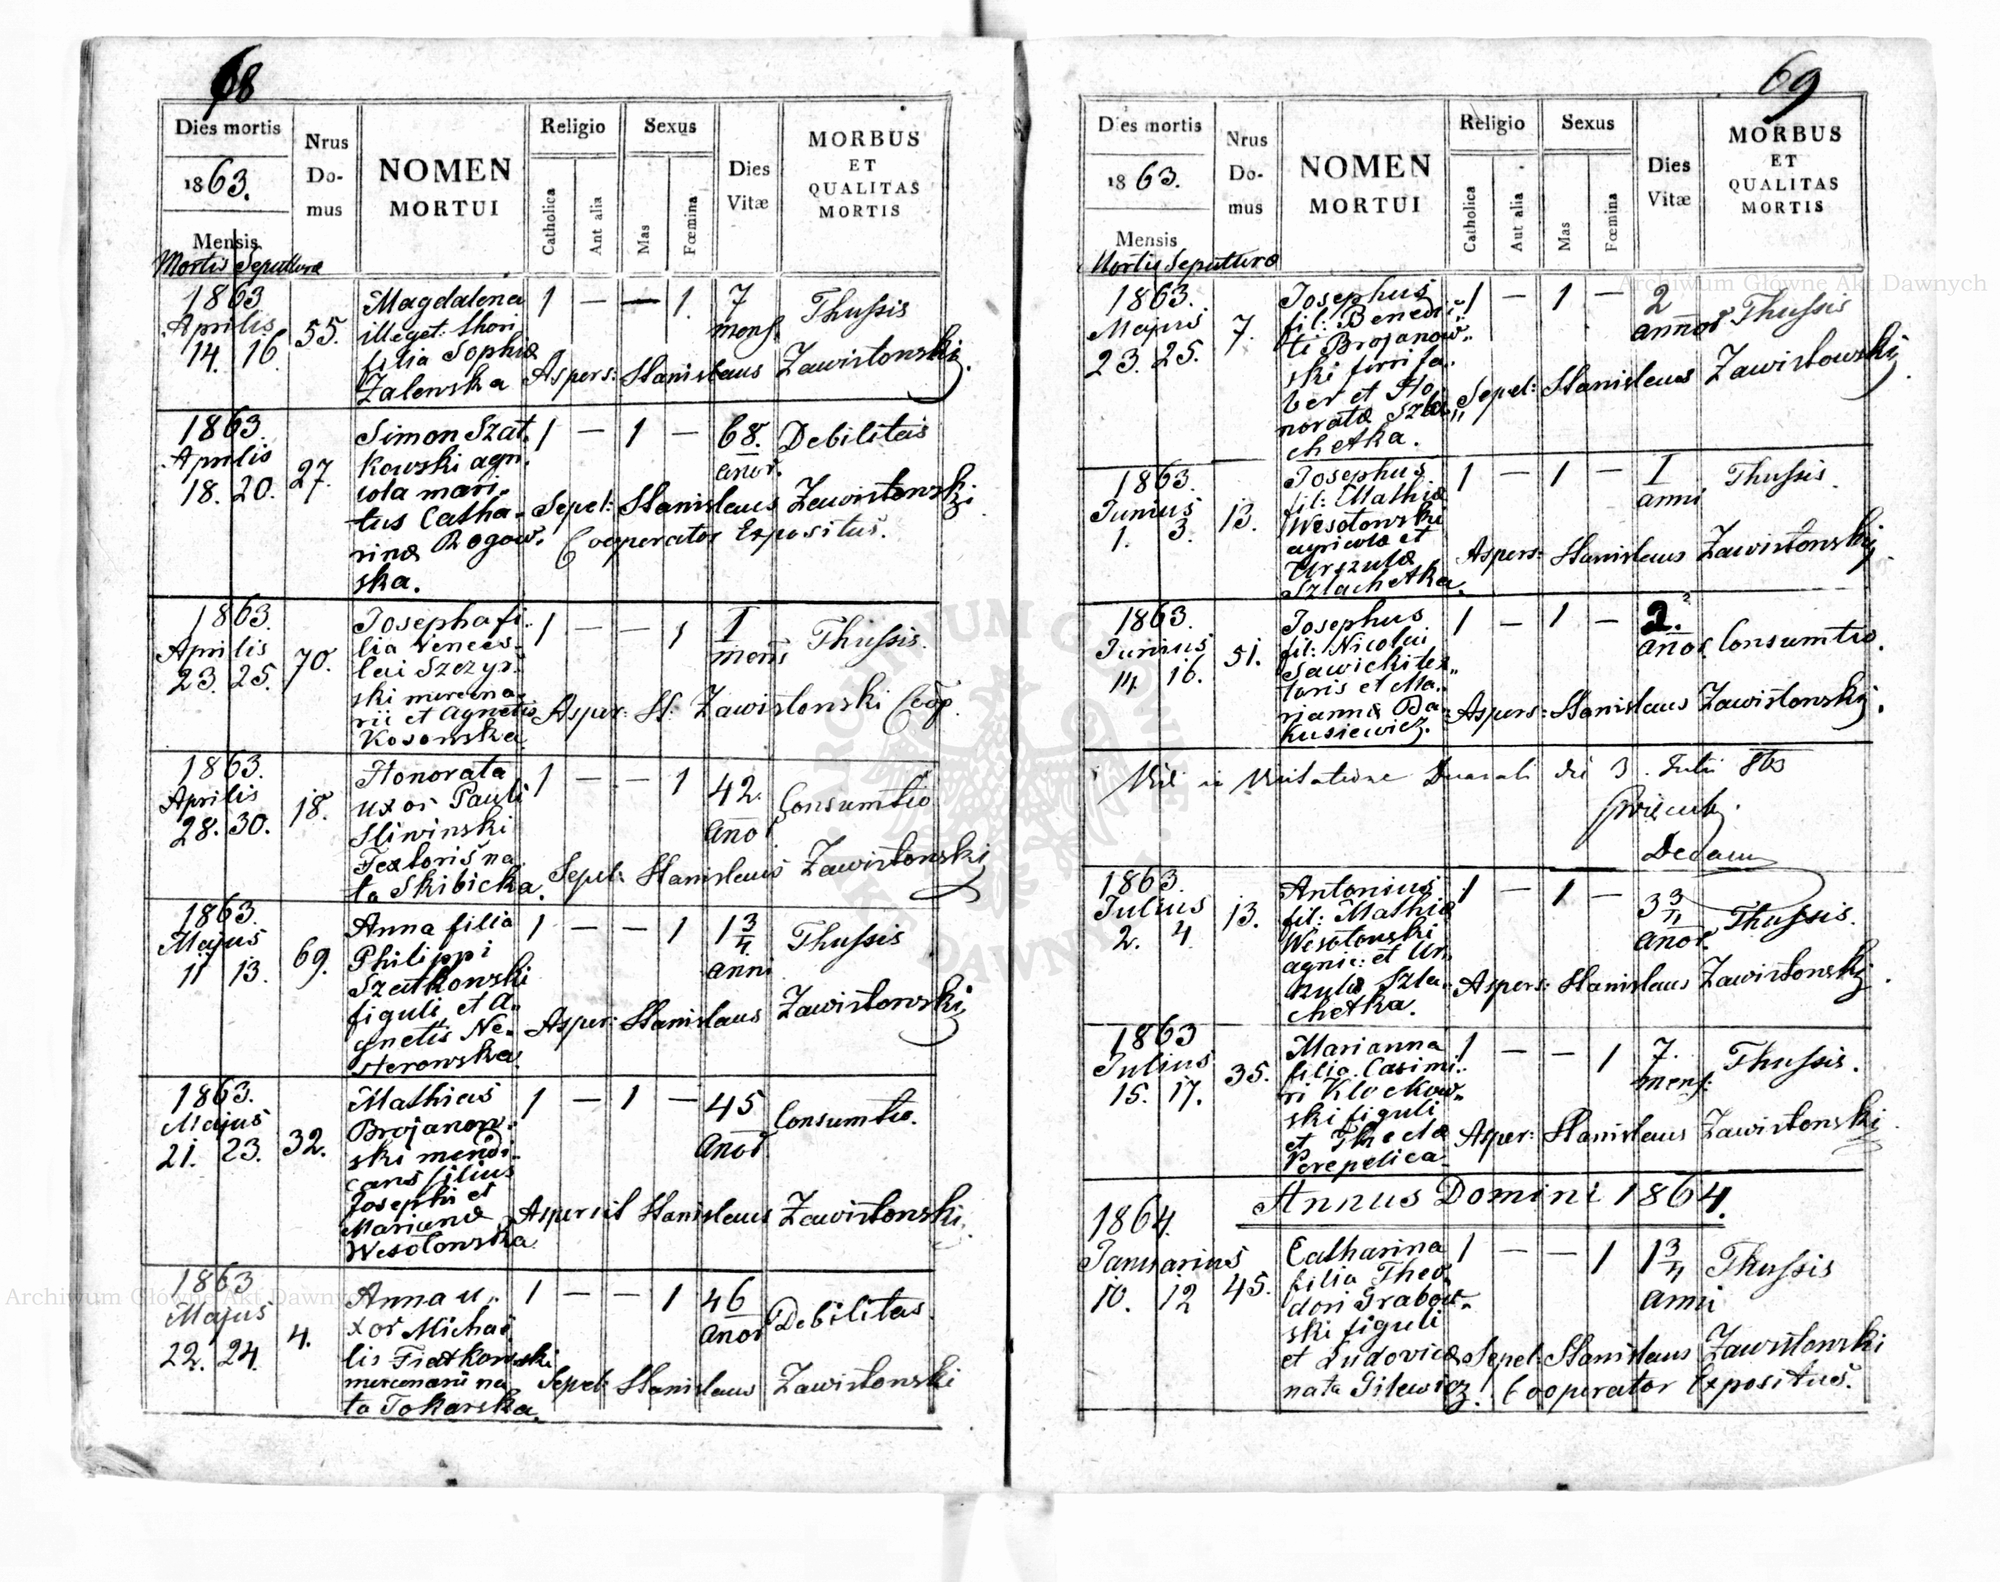 68
Dies mortis
1863.
Mensis
Mortis Sepulturæ
Nrus
Do-
mus
NOMEN
MORTUI
Religio
Catholica
Aut alia
Sexus
Mas
Fœmina
Dies
Vitæ
MORBUS
ET
QUALITAS
MORTIS
1863
Aprilis
14. 16.
55.
Magdalena
illeget: thori
filia Sophiæ
Zalewska
1 — — 1.
7
mens.
Thussis
Aspers: Stanislaus Zawistonski.
1863.
Aprilis
18. 20.
27.
Simon Szat„
kowski agri„
cola mari„
tus Catha„
rinæ Rogow„
ska.
1 — 1 —
68.
anor.
Debilitas
Sepel: Stanislaus Zawistonski
Cooperator Expositus.
1863.
Aprilis
23. 25.
70.
Josepha fi„
lia Vences„
lai Szczyr„
ski mercena„
rii et Agnetis
Kosowska
1 — — 1
1
mens
Thussis.
Asper: St: Zawistonski Coop.
1863.
Aprilis
28. 30.
18.
Honorata
uxor Pauli
Sliwinski
Textoris na„
ta Skibicka.
1 — — 1
42.
anor
Consumtio
Sepel: Stanislaus Zawistonski
1863.
Majus
11 13.
69.
Anna filia
Philippi
Szatkowski
figuli et A„
gnetis Ne„
sterowska
1 — — 1
1 3/4
anni
Thussis
Asper: Stanislaus Zawistowski
1863.
Majus
21. 23.
32.
Mathias
Brojanow„
ski mendi„
cans filius
Josephi et
Mariannæ
Wesolowska
1 — 1 —
45
anor
Consumtio.
Aspersit Stanislaus Zawistonski.
1863
Majus
22. 24.
4.
Anna u„
xor Michaë„
lis Fiatkowski
mercenarii na„
ta Tokarska.
1 — — 1
46
anor
Debilitas.
Sepel: Stanislaus Zawistonski
69
Dies mortis
1863.
Mensis
Mortis Sepulturæ
Nrus
Do-
mus
NOMEN
MORTUI
Religio
Catholica
Aut alia
Sexus
Mas
Fœmina
Dies
Vitæ
MORBUS
ET
QUALITAS
MORTIS
1863.
Majus
23. 25.
7.
Josephus
fil: Benedic„
ti Brojanow„
ski ferri fa„
ber et Ho„
noratæ Szla„
chetka.
1 — 1 —
2
annor
Thussis
Sepel: Stanislaus Zawistowski
1863.
Junius
1. 3.
13.
Josephus
fil: Mathiæ
Wesolowski
agricola et
Urszulæ
Szlachetka.
1 — 1 —
1
anni
Thussis.
Aspers: Stanislaus Zawistonski
1863.
Junius
14. 16.
51.
Josephus
fil: Nicolai
Sawicki tex„
toris et Ma„
riannæ Ba„
kusiewicz.
1 — 1 —
2.
anor.
Consumtio.
Aspers: Stanislaus Zawistonski.
3. Julii 863
1863.
Julius
2. 4.
13.
Antonius
fil: Mathiæ
Wesolowski
agric: et Ur„
zulæ Szla„
chetka.
1 — 1 —
3 3/4
anor.
Thussis.
Aspers: Stanislaus Zawistonski.
1863
Julius
15. 17.
35.
Marianna
filia Casimi„
ri Klockow„
ski figuli
et Theclæ
Perepelica
1 — — 1
7.
mens:
Thussis.
Asper: Stanislaus Zawistonski
Annus Domini 1864.
1864.
Januarius
10. 12
45.
Catharina
filia Theo„
dori Grabow„
ski figuli
et Ludovicæ
nata Gilewicz.
1 — — 1
1 3/4
anni
Thussis
Sepel: Stanislaus Zawistonski
Cooperator Expositus.
Archiwum Główne Akt Dawnych
Archiwum Główne Akt Dawnych
ARCHIWUM GŁÓWNE AKT DAWNYCH